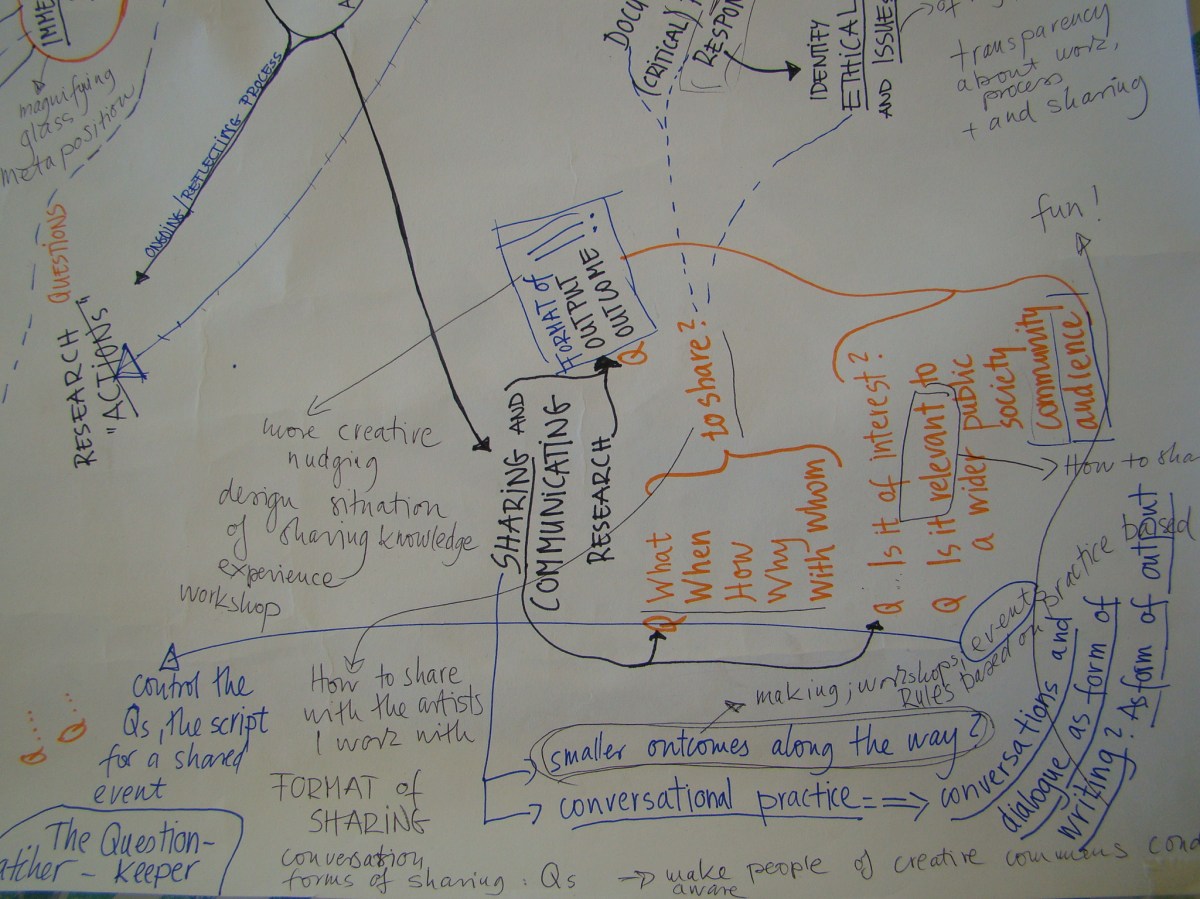 IMME
magnifying
glass
meta position
ONGOING/REFLECTING PROCESS
QUESTIONS
RESEARCH
"ACTIONS"
DOCU
(CRITICAL)
RESPON
IDENTIFY
ETHICAL
AND ISSUES
transparency
about work,
process
+ and sharing
fun!
FORMAT of
OUTPUT
OUTCOME:
more creative
nudging
design situation
of sharing knowledge
experience
workshop
SHARING AND
COMMUNICATING
RESEARCH
Q
Q What
When
How
Why
With whom
to share?
Q Is it of interest?
Q Is it relevant to
a wider public
society
community
audience
How to sha
control the
Qs, the script
for a shared
event
Q....
Q...
The Question-
atcher - keeper
How to share
with the artists
I work with
FORMAT of
SHARING
conversation
forms of sharing: Qs
→ make people of creative commons cond
aware
making; workshops, event practice based
Rules based on
smaller outcomes along the way?
conversational practice ==⇒ conversations and
dialogue as form of
writing? As form of output